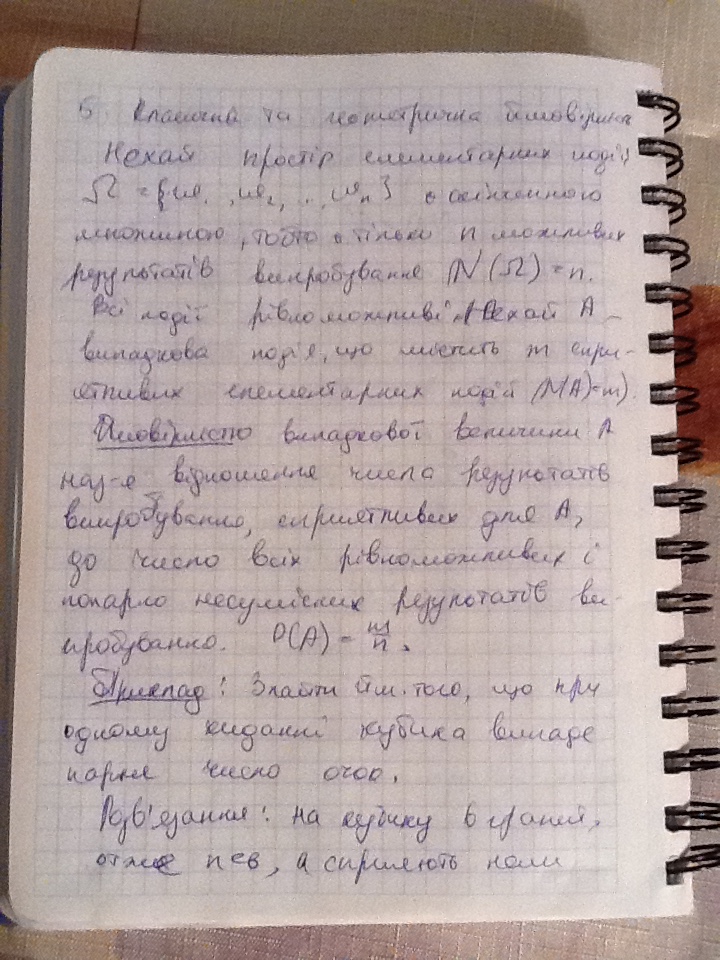 5. Класична та геометрична ймовірність
Нехай простір елементарних подій
Ω = {ω₁, ω₂, ..., ωₙ} є скінченною
множиною, тобто є тільки n можливих
результатів випробування N(Ω) = n.
Всі події рівноможливі. Нехай A –
випадкова подія, що містить m сприят-
ливих елементарних подій (N(A)=m).
Ймовірністю випадкової величини A
наз-є відношення числа результатів
випробування, сприятливих для A,
до числа всіх рівноможливих і
попарно несумісних результатів ви-
пробування. P(A) = m/n.
Приклад: Знайти йм. того, що при
одному киданні кубика випаде
парне число очок.
Розв'язання: на кубику 6 граней,
отже n=6, а сприяють нам